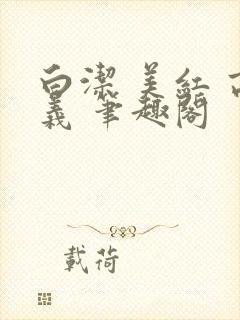 白潔 美紅 高
義 筆趣閣
載荷